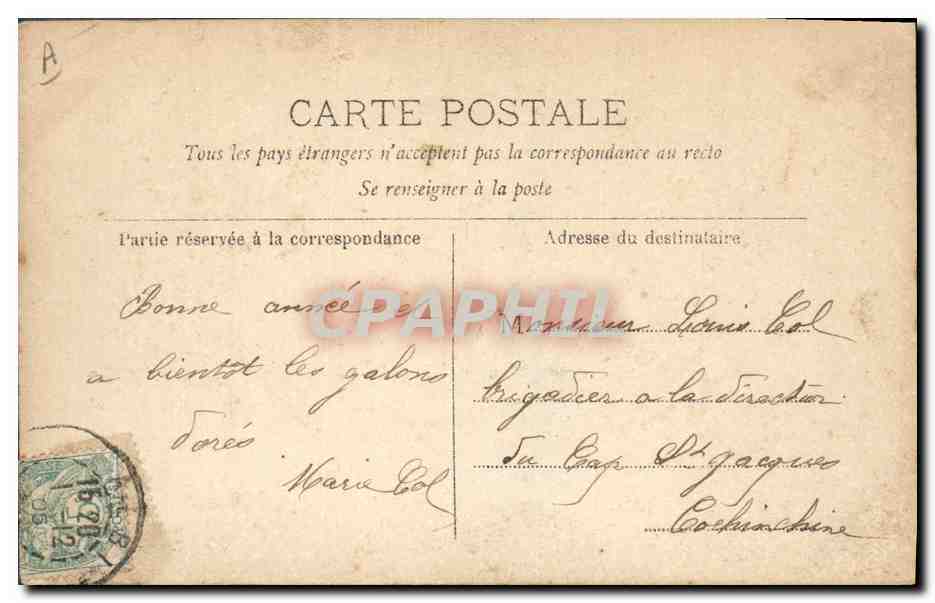 A
CARTE POSTALE
Tous les pays étrangers n'acceptent pas la correspondance au recto
Se renseigner à la poste
Partie réservée à la correspondance
Adresse du destinataire
Bonne année et
a bientôt les galons
dorés
Marie Col
Monsieur Louis Col
brigadier a la direction
du Cap St Jacques
Cochinchine
CPAPHIL